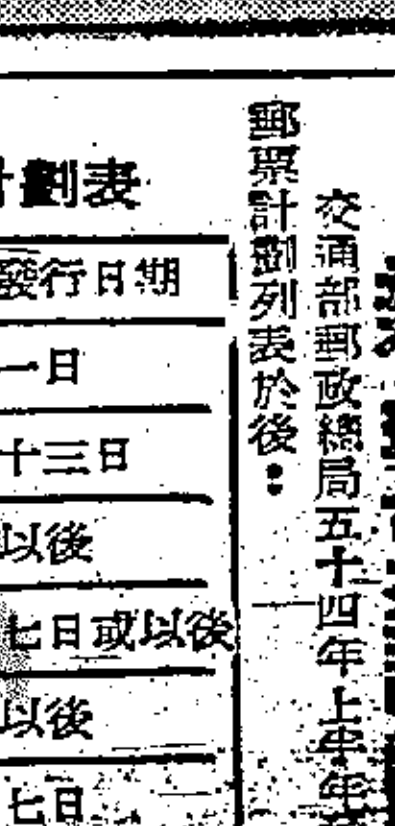 交通部郵政總局五十四年上半年
郵票計劃列表於後：
計劃表
發行日期
一日
十三日
以後
七日或以後
以後
七日